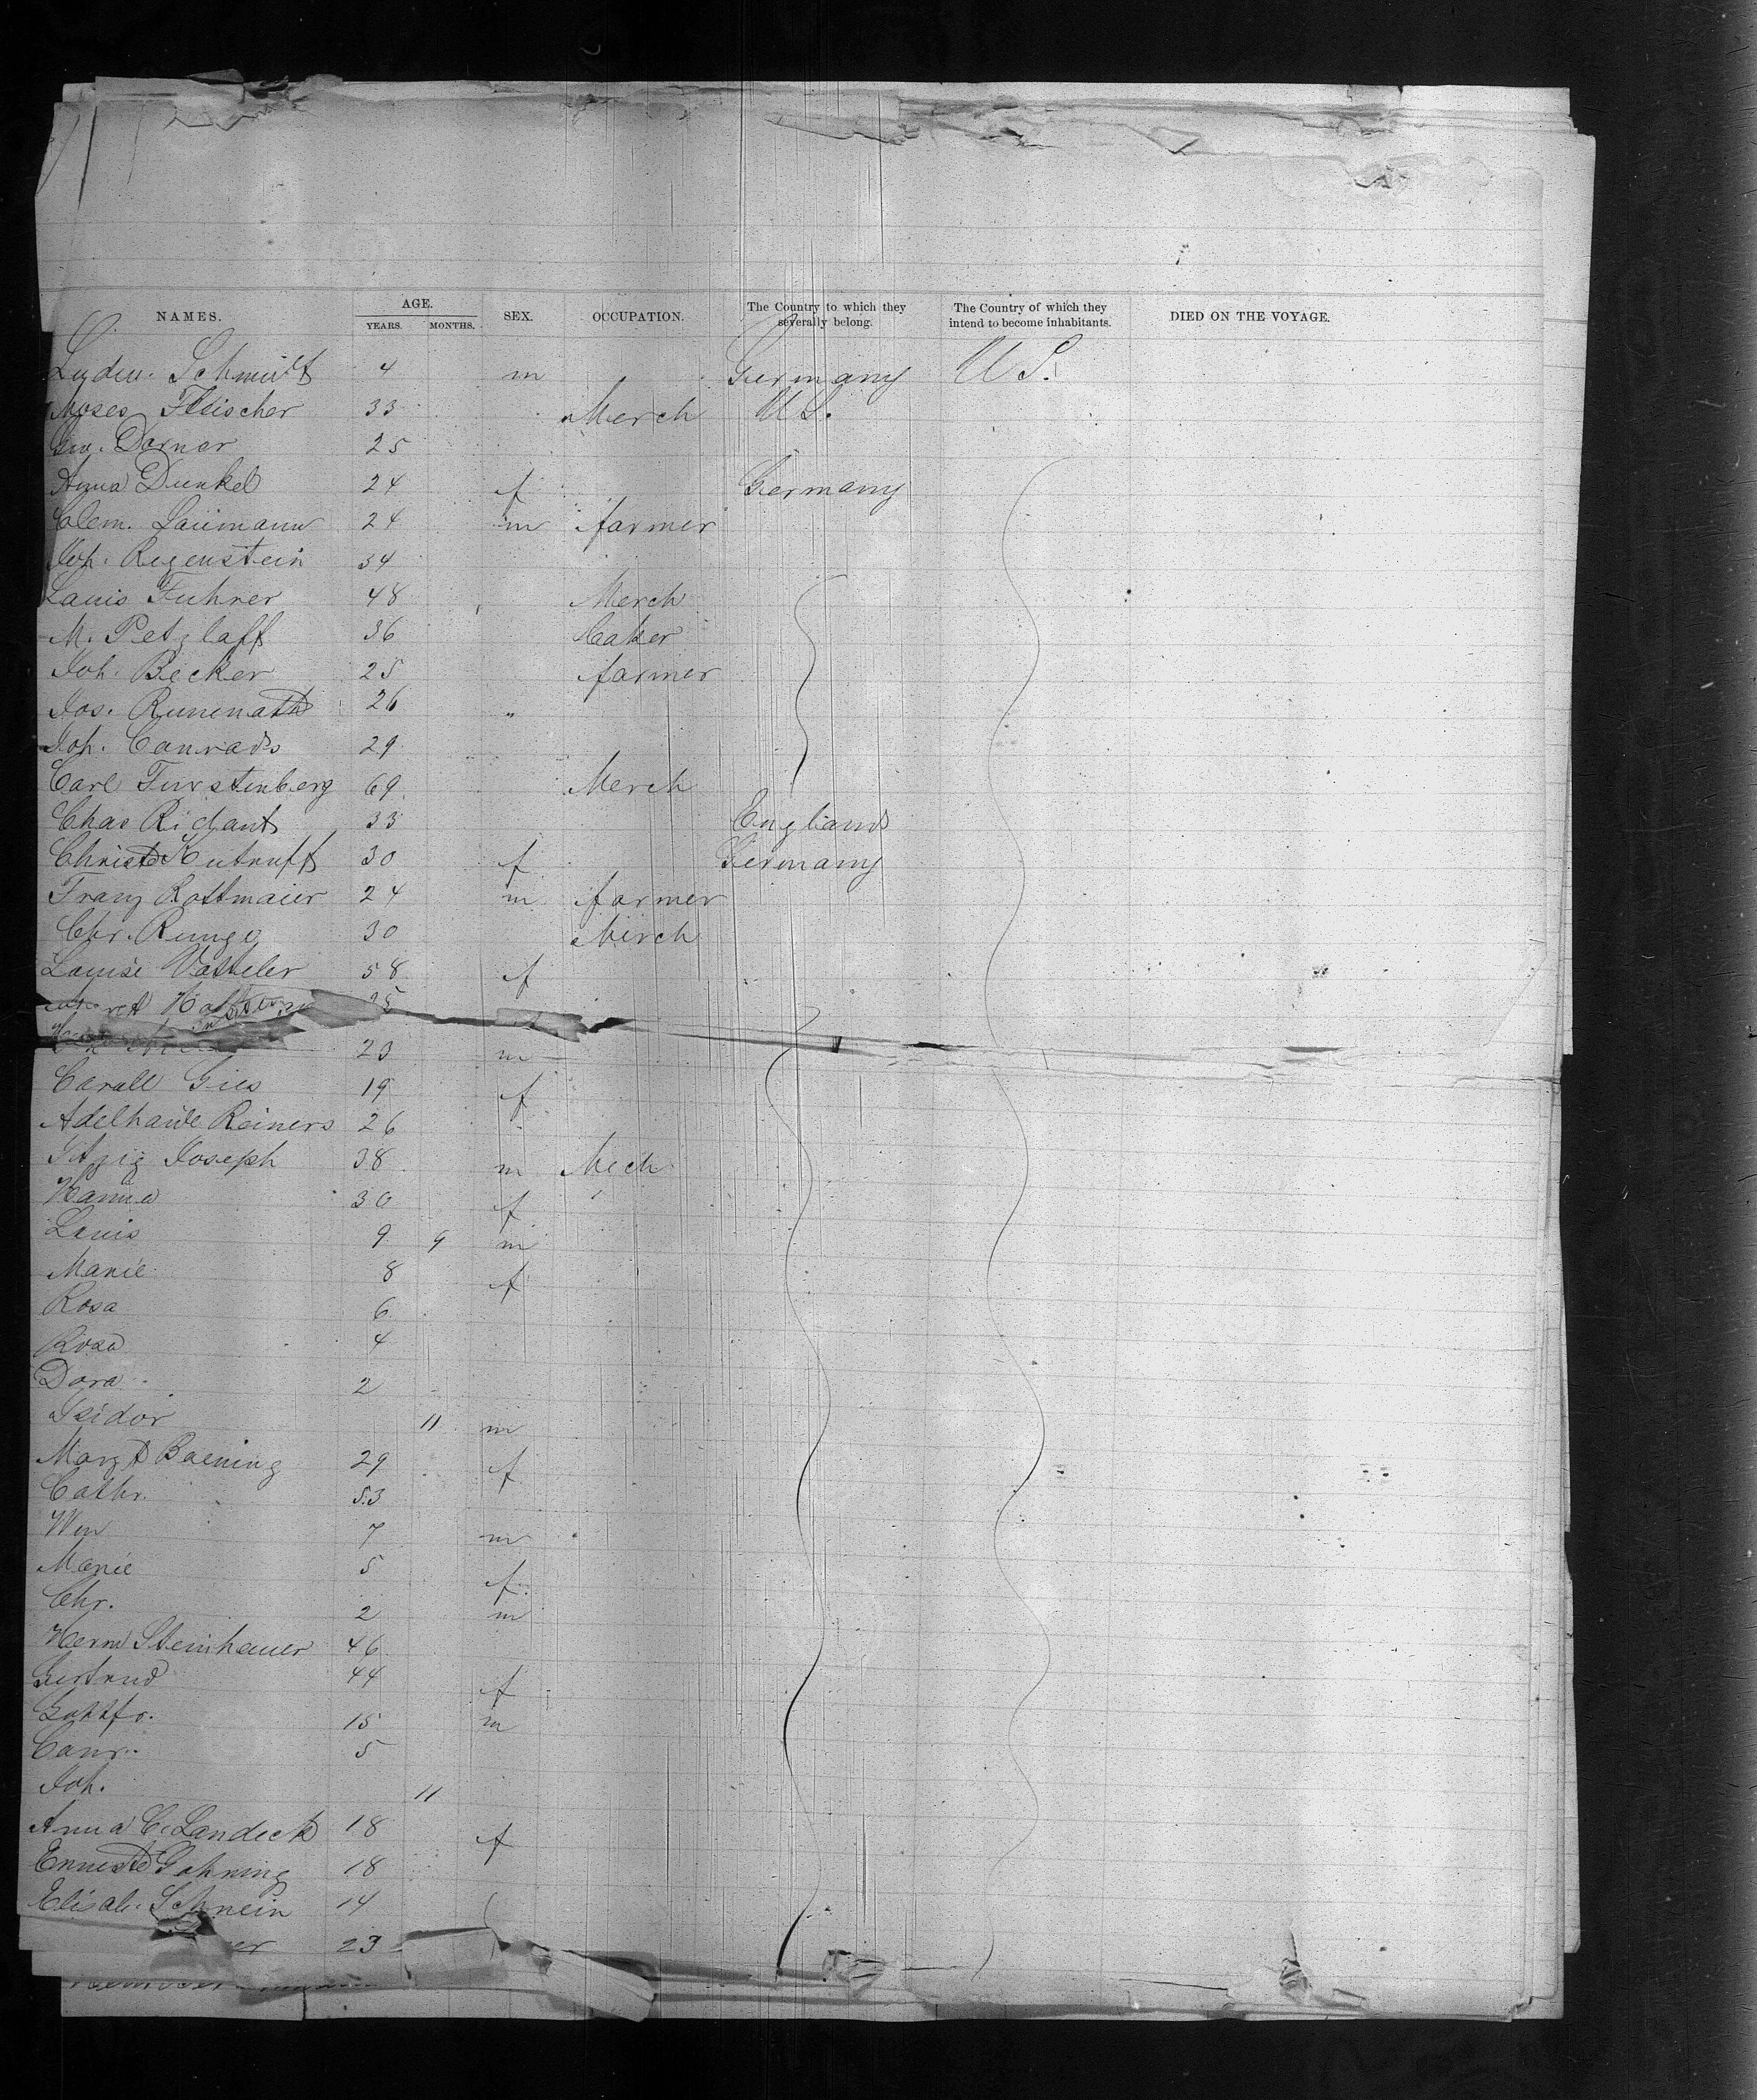 NAMES. AGE. YEARS. MONTHS. SEX. OCCUPATION. The Country to which they severally belong. The Country of which they intend to become inhabitants. DIED ON THE VOYAGE.
Schmidt 4 m Germany U S.
Moses Fleischer 33 Merch U S.
Dorner 25
Anna Dunkel 24 f Germany
Clem. Laumann 24 m farmer
Joh. Regenstein 34
Louis Fuhrer 48 Merch
M. Petzlaff 36 Baker
Joh. Becker 25 farmer
Jos. 26 "
Joh. Conrads 29
Carl Furstenberg 69 Merch
Chas 33 England
30 f Germany
Franz Rottmaier 24 m farmer
Chr. Runge 30 Merch
Louise 58 f
23 m
Gies 19 f
Adelhaide Reiners 26
Itzig Joseph 38 m Mech
Hanna 30 f
Louis 9 9 m
Marie 8 f
Rosa 6
Rosa 4
Dora 2
Isidor 11 m
Margt Boening 29 f
Cathr. 53
Wm 7 m
Marie 5 f
Chr. 2 m
Herm Steinhauer 46
Gertrud 44 f
Gottfr. 15 m
Conr. 5
Joh. 11
Anna C. Landeck 18 f
18
Elisab. Schnein 14
23